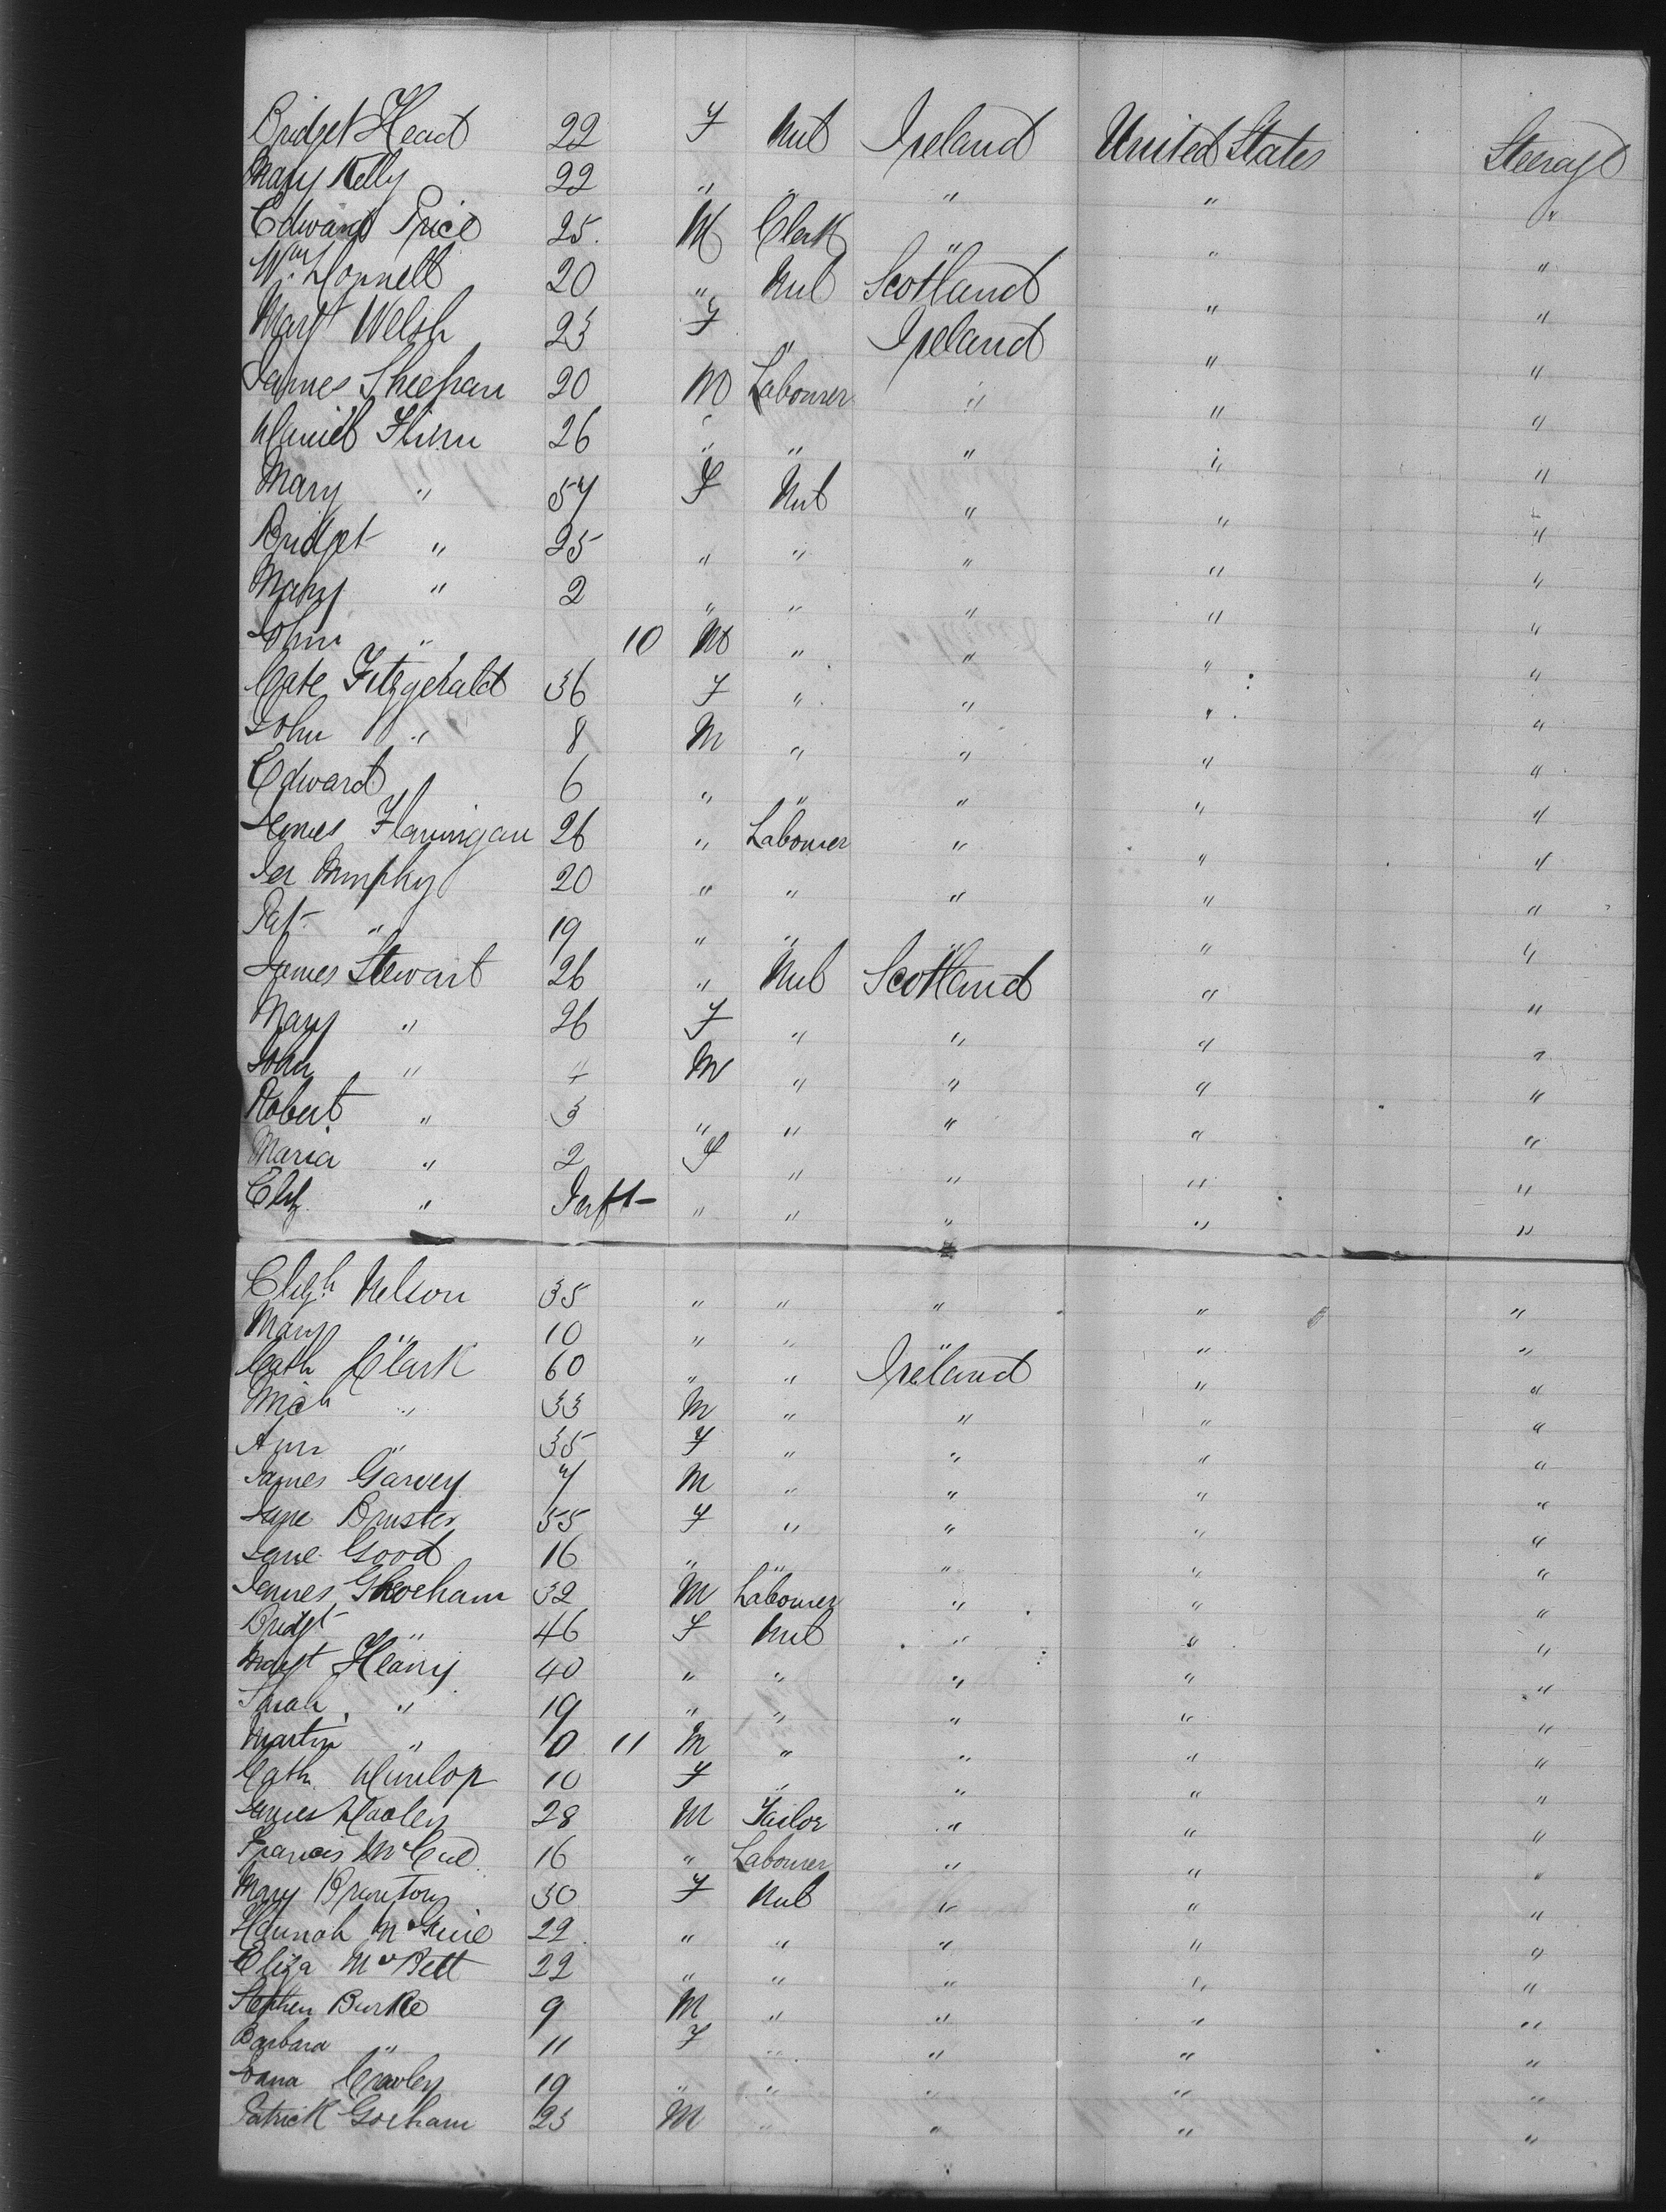 Bridget Head 22 F Nul Ireland United States Steerage
Mary Kelly 22 " " " " "
Edward Price 25. M Clerk " " "
Wm. Donnell 20 " Nul Scotland " "
Mary Welsh 23 F " Ireland " "
James Sheehan 20 M Labourer " " "
Daniel Flinn 26 " " " " "
Mary " 57 F Nul " " "
Bridget " 25 " " " " "
Mary " 2 " " " " "
John " 10 M " " " "
Cate Fitzgerald 36 F " " " "
John " 8 M " " " "
Edward " 6 " " " " "
James Flannigan 26 " Labourer " " "
Jer Murphy 20 " " " " "
Pat " 19 " " " " "
James Stewart 26 " Nul Scotland " "
Mary " 26 F " " " "
John " 4 M " " " "
Robert " 3 " " " " "
Maria " 2 F " " " "
Eliz " Inft " " " " "
Elizh Nelson 35 " " " " "
Mary " 10 " " " " "
Cath Clark 60 " " Ireland " "
Mich " 33 M " " " "
Ann " 35 F " " " "
James Garvey 7 M " " " "
Jane Bruster 55 F " " " "
Jane Good 16 " " " " "
James 32 M Labourer " " "
Bridgt " 46 F Nul " " "
Margt Heany 40 " " " " "
Sarah " 19 " " " " "
Martin " 0 11 M " " " "
Cath Dunlop 10 F " " " "
James Dooley 28 M Tailor " " "
Francis McCue 16 " Labourer " " "
Mary Brunton 30 F Nul " " "
Hannah McGuire 22 " " " " "
Eliza McBett 22 " " " " "
Stephen Burke 9 M " " " "
Barbara " 11 F " " " "
Crawley 19 " " " " "
Patrick Gorham 23 M " " " "